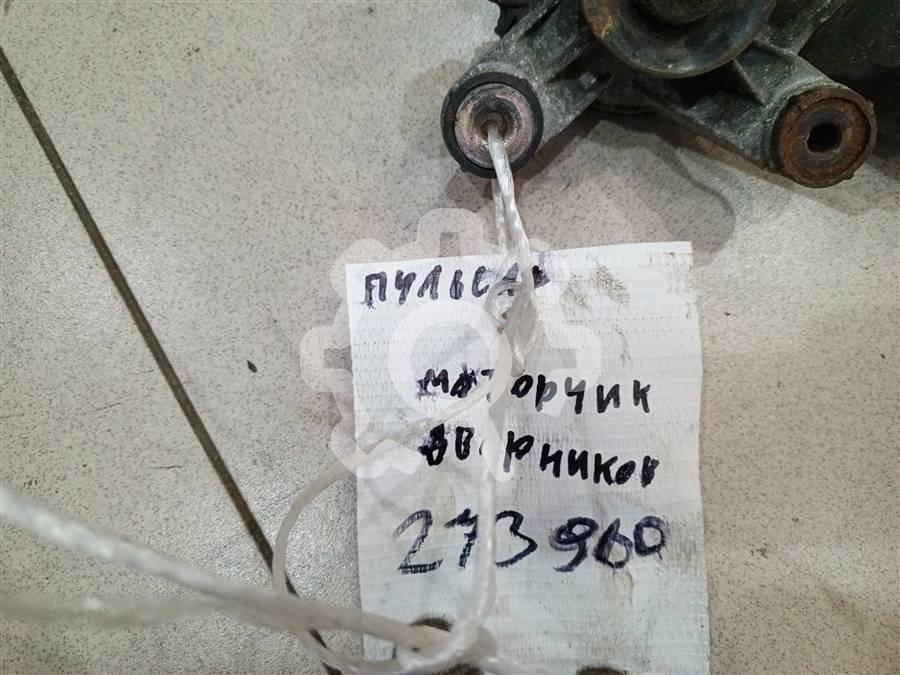 ПУЛЬСАР
МОТОРЧИК
ДВОРНИКОВ
273960